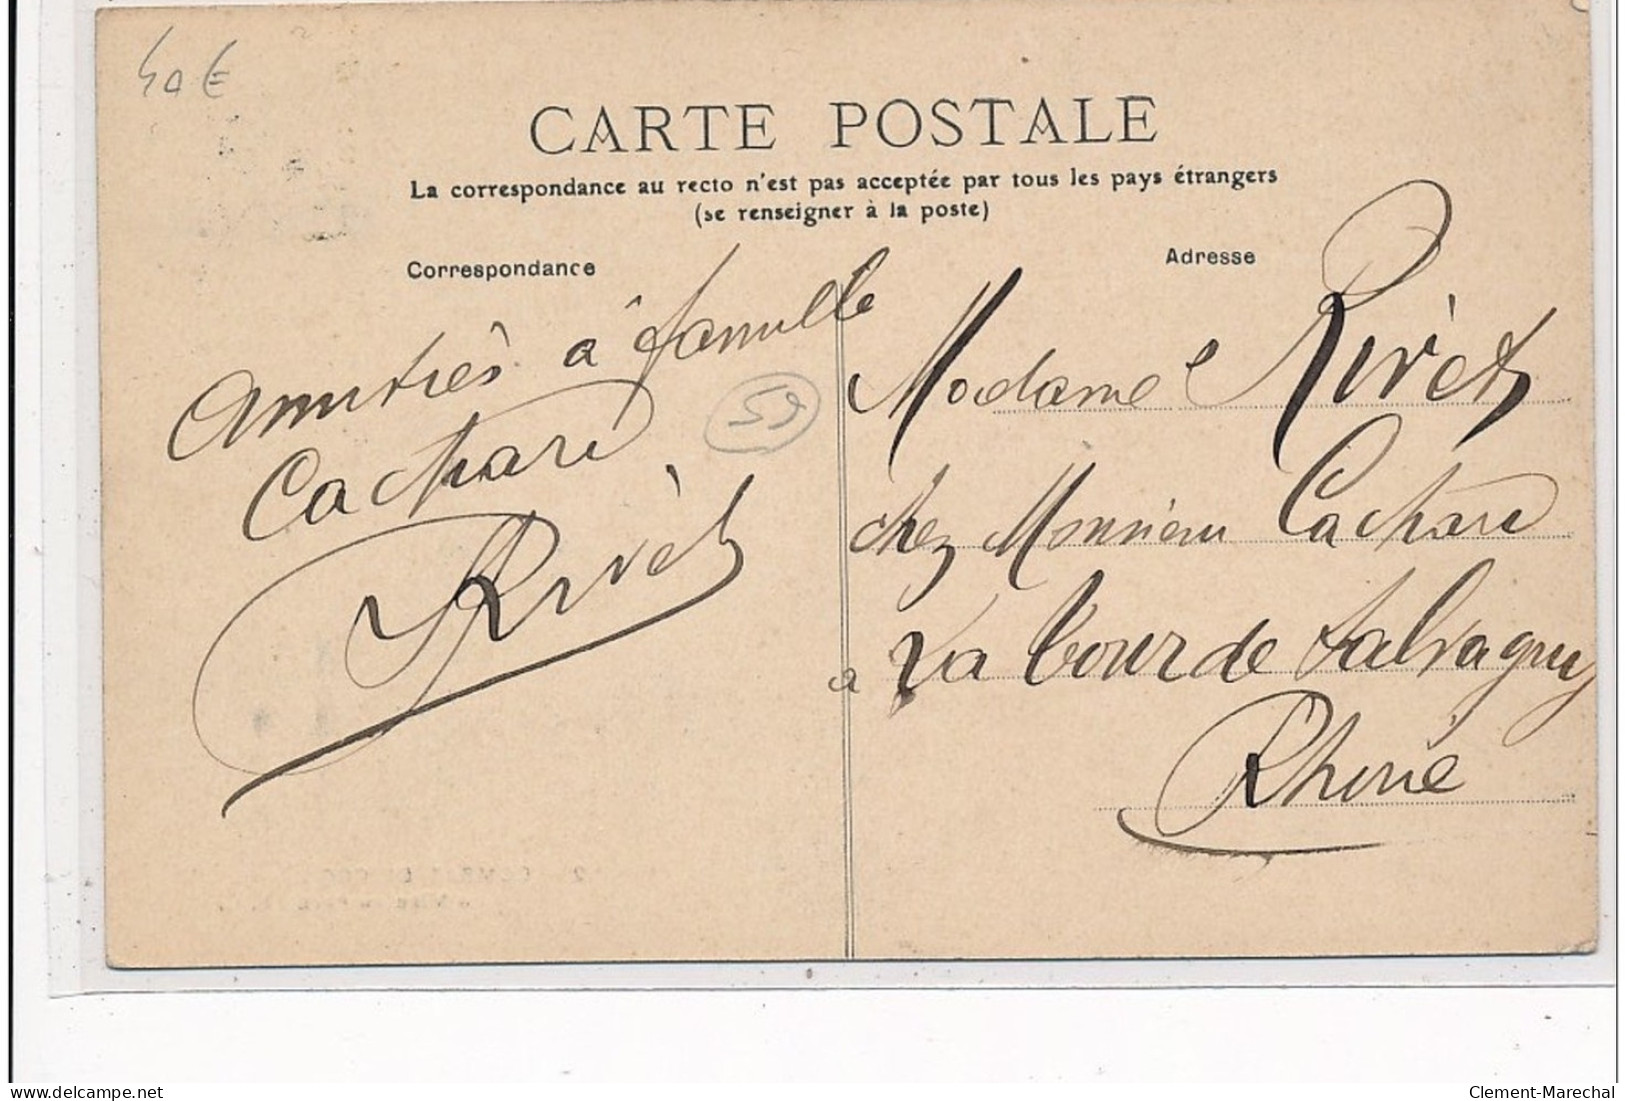 40 €
CARTE POSTALE
La correspondance au recto n'est pas acceptée par tous les pays étrangers
(se renseigner à la poste)
Correspondance
Adresse
Amitiès a famille
Cachard
Rivèt
59
Madame Rivèt
chez Monsieur Cachard
a La Tour de Salvagny
Rhône
delcampe.net
Clement-Marechal